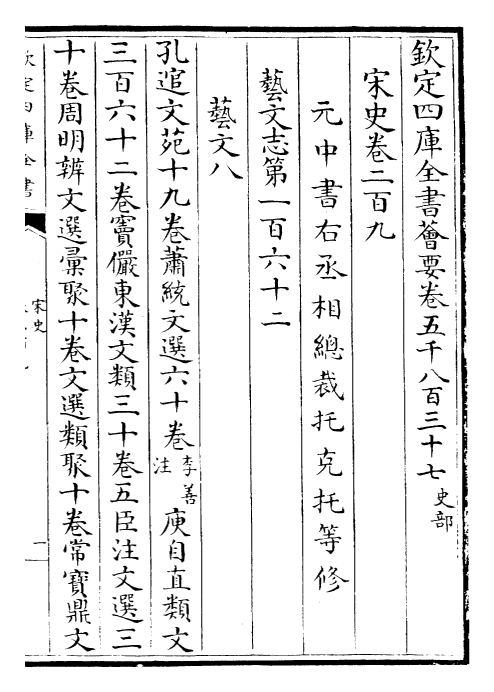 欽定四庫全書薈要卷五千八百三十七 史部
宋史卷二百九
元中書右丞相總裁托克托等修
藝文志第一百六十二
藝文八
孔逭文苑十九卷蕭統文選六十卷 李善注 庾自直類文
三百六十二卷竇儼東漢文類三十卷五臣注文選三
十卷周明辨文選彙聚十卷文選類聚十卷常寶鼎文
欽定四庫全書
宋史
一